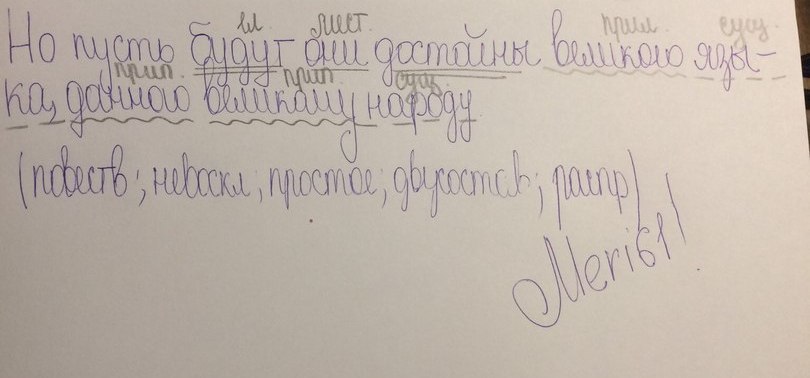 гл мест. прил сущ.
Но пусть будут они достойны великого язы-
прил. прил. сущ
ка, данного великому народу
(повеств; невоскл; простое; двусостав; распр)
Meri61!